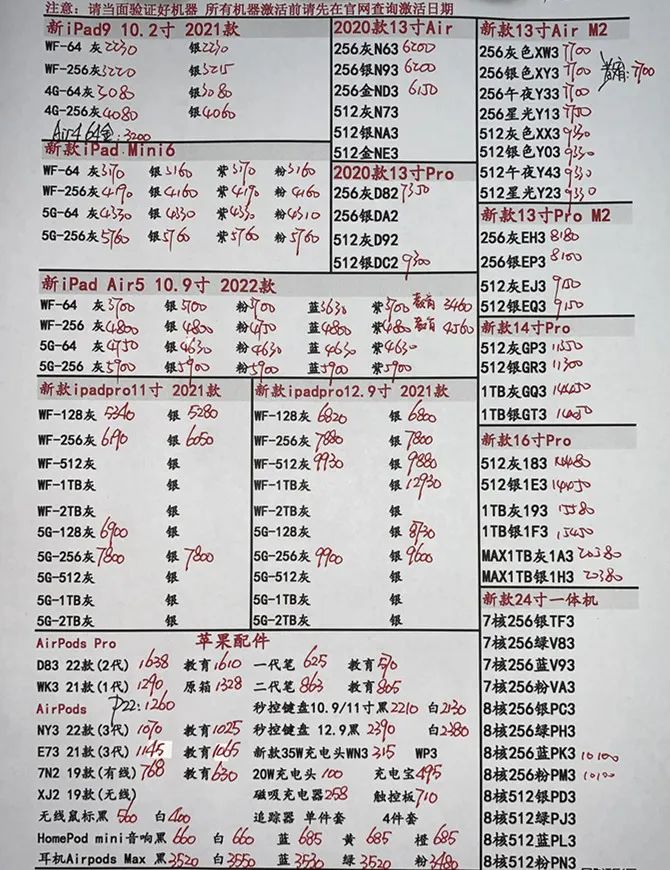 注意: 请当面验证好机器 所有机器激活前请先在官网查询激活日期
新iPad9 10.2寸 2021款
WF-64 灰2230 银2230
WF-256灰3220 银3215
4G-64 灰3080 银3080
4G-256灰4080 银4060
Air4 64金:3200
新款iPad Mini6
WF-64 灰3170 银3160 紫3170 粉3160
WF-256灰4190 银4160 紫4190 粉4160
5G-64 灰4330 银4330 紫4330 粉4310
5G-256灰5760 银5760 紫5760 粉5760
2020款13寸Air
256灰N63 6200
256银N93 6200
256金ND3 6150
512灰N73
512银NA3
512金NE3
2020款13寸Pro
256灰D82 7350
256银DA2
512灰D92
512银DC2 9300
新款13寸Air M2
256灰色XW3 7700
256银色XY3 7700 教育:7700
256午夜Y33 7700
256星光Y13 7750
512灰色XX3 9330
512银色Y03 9330
512午夜Y43 9330
512星光Y23 9330
新款13寸Pro M2
256灰EH3 8180
256银EP3 8100
512灰EJ3 9150
512银EQ3 9150
新款14寸Pro
512灰GP3 11550
512银GR3 11300
1TB灰GQ3 14450
1TB银GT3
新款16寸Pro
512灰183 14480
512银1E3 14450
1TB灰193 15580
1TB银1F3 15450
MAX1TB灰1A3 20380
MAX1TB银1H3 20380
新款24寸一体机
7核256银TF3
7核256绿V83
7核256蓝V93
7核256粉VA3
8核256银PC3
8核256绿PH3
8核256蓝PK3 10100
8核256粉PM3 10100
8核512银PD3
8核512绿PJ3
8核512蓝PL3
8核512粉PN3
新iPad Air5 10.9寸 2022款
WF-64 灰3700 银3700 粉3700 蓝3630 紫3700 教育 3460
WF-256 灰4800 银4800 粉4750 蓝4800 紫4800 教育 4560
5G-64 灰4750 银4630 粉4630 蓝4630 紫4630
5G-256 灰5900 银5900 粉5900 蓝5900 紫5900
新款ipadpro11寸 2021款
WF-128灰 5340 银 5280
WF-256灰 6190 银 6050
WF-512灰 银
WF-1TB灰 银
WF-2TB灰 银
5G-128灰 6900 银
5G-256灰 7800 银 7800
5G-512灰 银
5G-1TB灰 银
5G-2TB灰 银
新款ipadpro12.9寸 2021款
WF-128灰 6820 银 6800
WF-256灰 7880 银 7800
WF-512灰 9930 银 9880
WF-1TB灰 银 12930
WF-2TB灰 银
5G-128灰 银 8730
5G-256灰 9900 银 9600
5G-512灰 银
5G-1TB灰 银
5G-2TB灰 银
AirPods Pro 苹果配件
D83 22款(2代) 1638 教育1610 一代笔 625 教育570
WK3 21款(1代) 1290 原箱1328 二代笔 863 教育805
AirPods P22:1260 秒控键盘10.9/11寸黑2210 白2130
NY3 22款(3代) 1070 教育1025 秒控键盘 12.9黑 2390 白2380
E73 21款(3代) 1145 教育1065 新款35W充电头WN3 315 WP3
7N2 19款(有线) 768 教育630 20W充电头 100 充电宝495
XJ2 19款(无线) 磁吸充电器258 触控板710
无线鼠标黑560 白400 追踪器 单件套 4件套
HomePod mini音响黑660 白 660 蓝 685 黄 685 橙685
耳机Airpods Max 黑3520 白3550 蓝3530 绿3520 粉3480